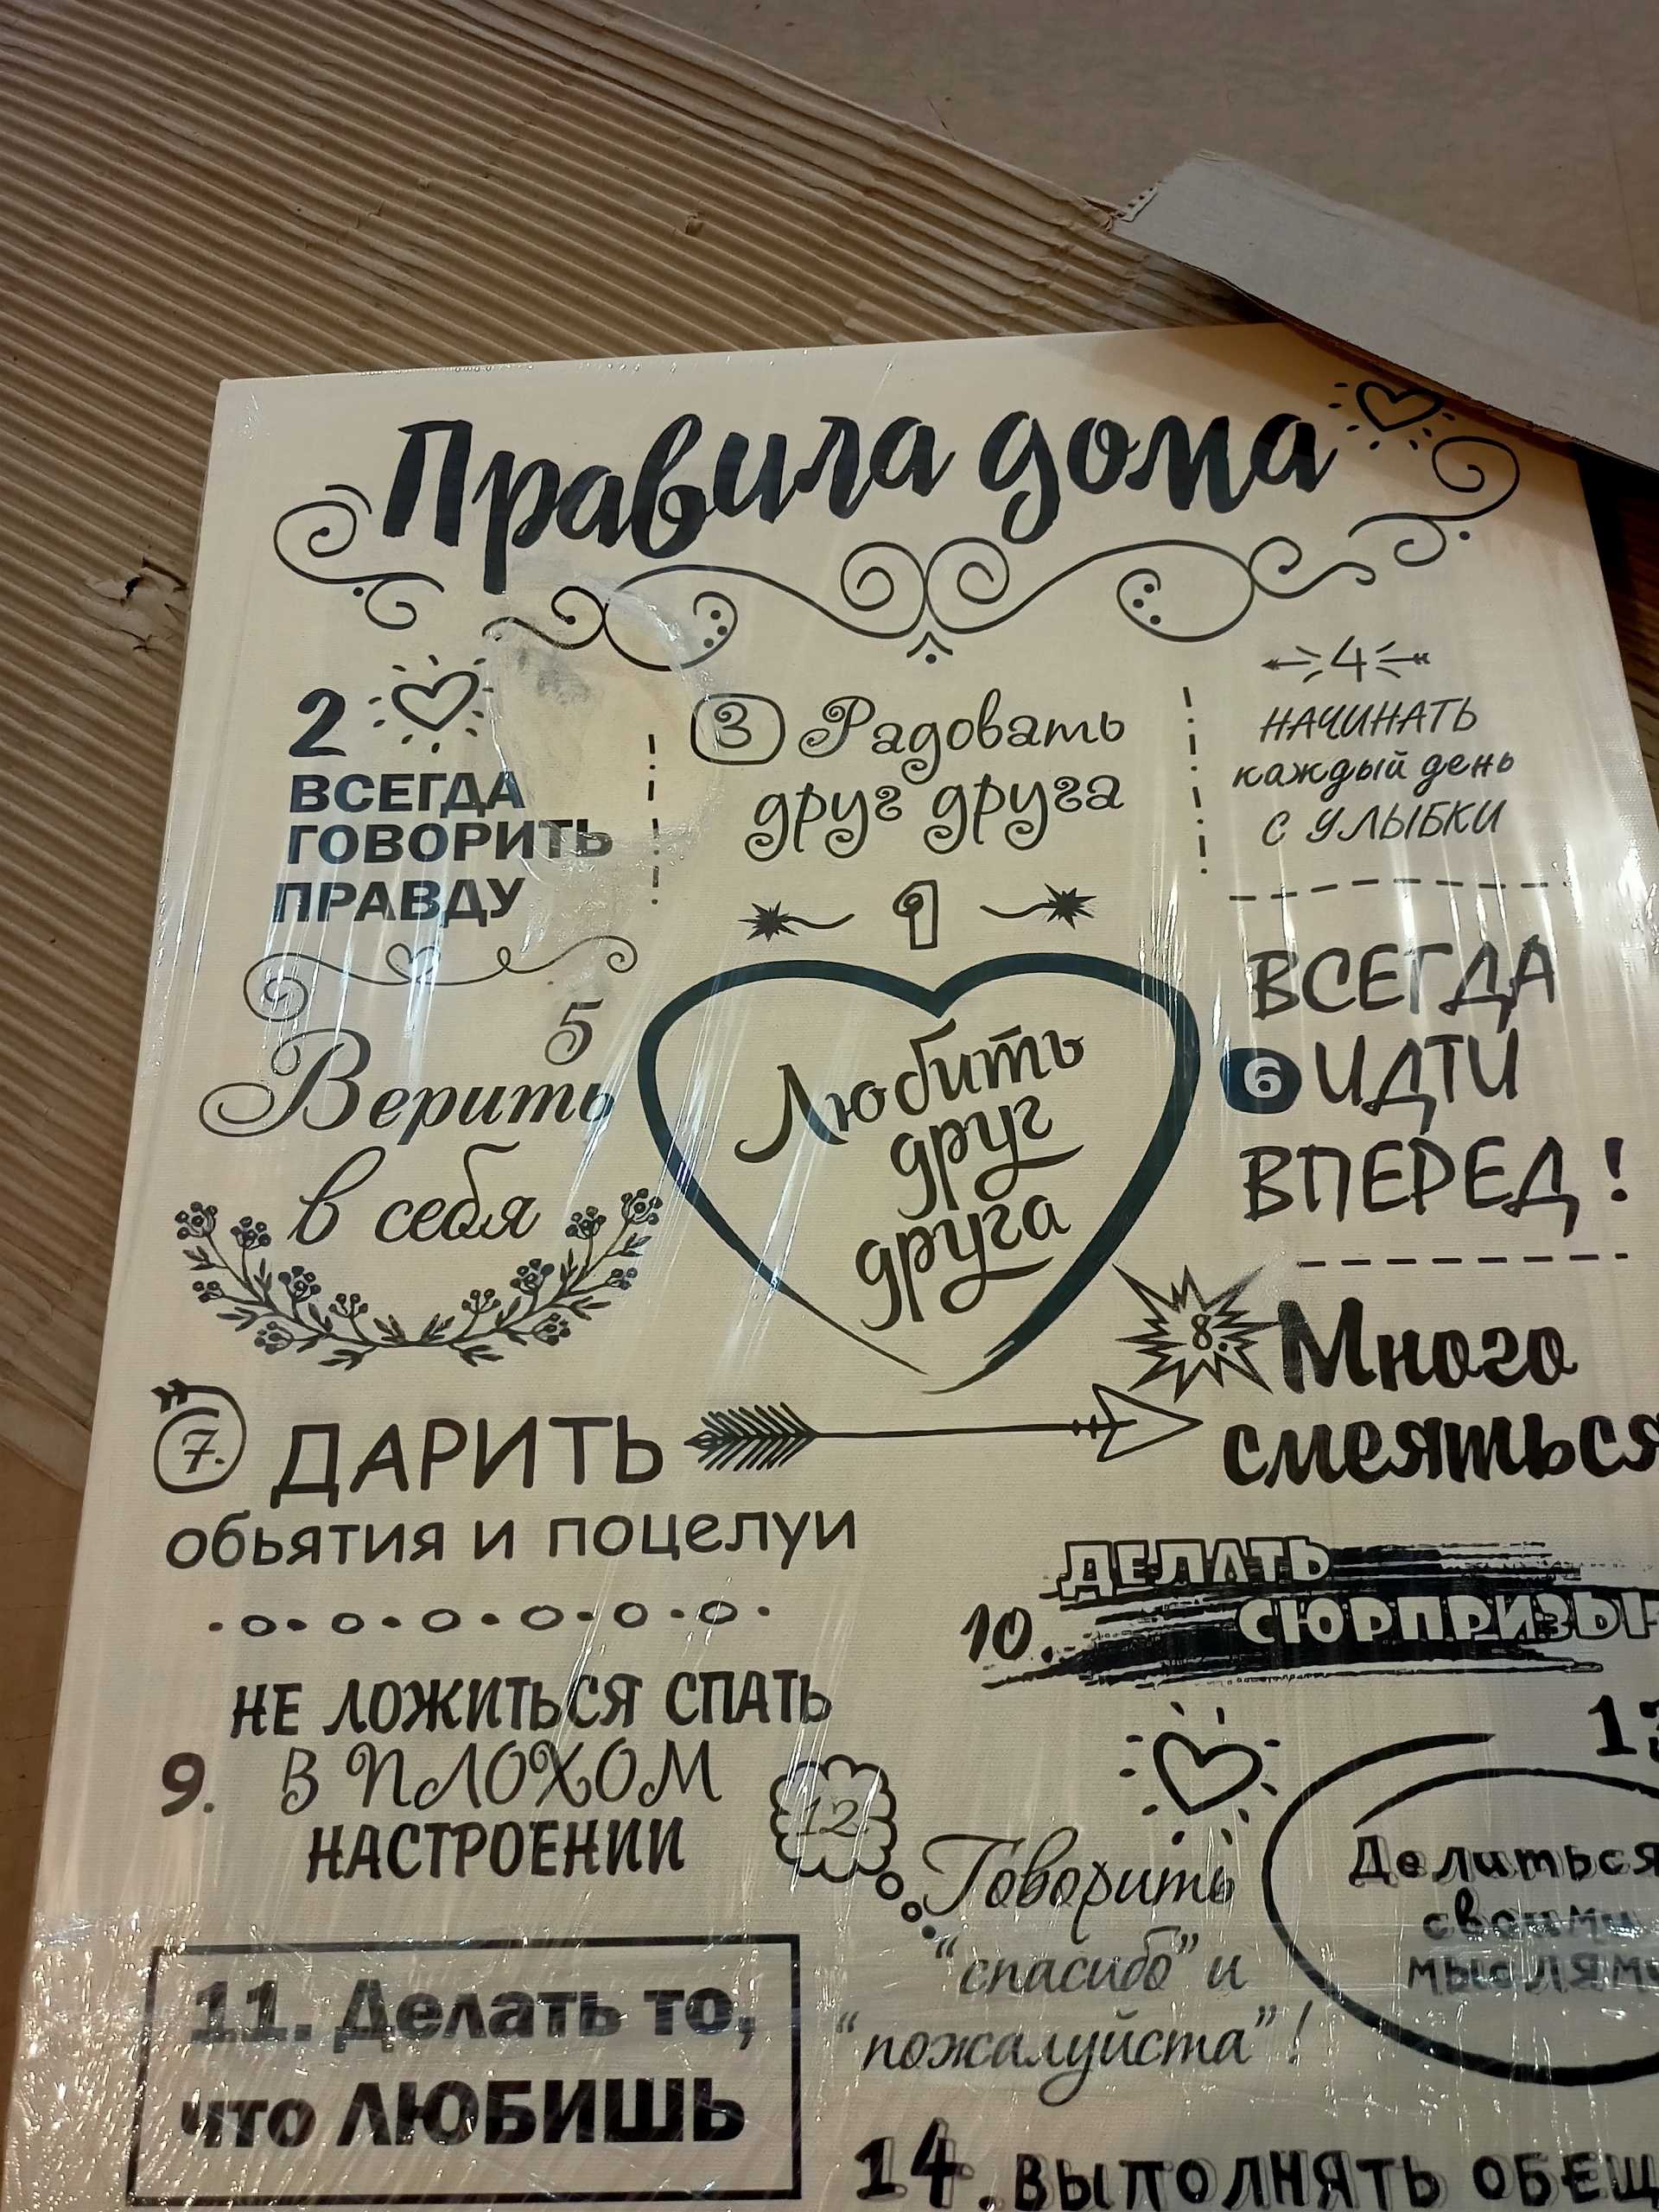 Правила дома
2
ВСЕГДА
ГОВОРИТЬ
ПРАВДУ
3 Радовать
друг друга
4
НАЧИНАТЬ
каждый день
С УЛЫБКИ
1
Любить
друг
друга
5
Верить
в себя
ВСЕГДА
6 ИДТИ
ВПЕРЕД!
7. ДАРИТЬ
обьятия и поцелуи
8. Много
смеяться
НЕ ЛОЖИТЬСЯ СПАТЬ
9. В ПЛОХОМ
НАСТРОЕНИИ
10. ДЕЛАТЬ
СЮРПРИЗЫ
11. Делать то,
что ЛЮБИШЬ
12
Говорить
"спасибо" и
"пожалуйста"!
13
Делиться
своими
мыслями
14. ВЫПОЛНЯТЬ ОБЕЩ